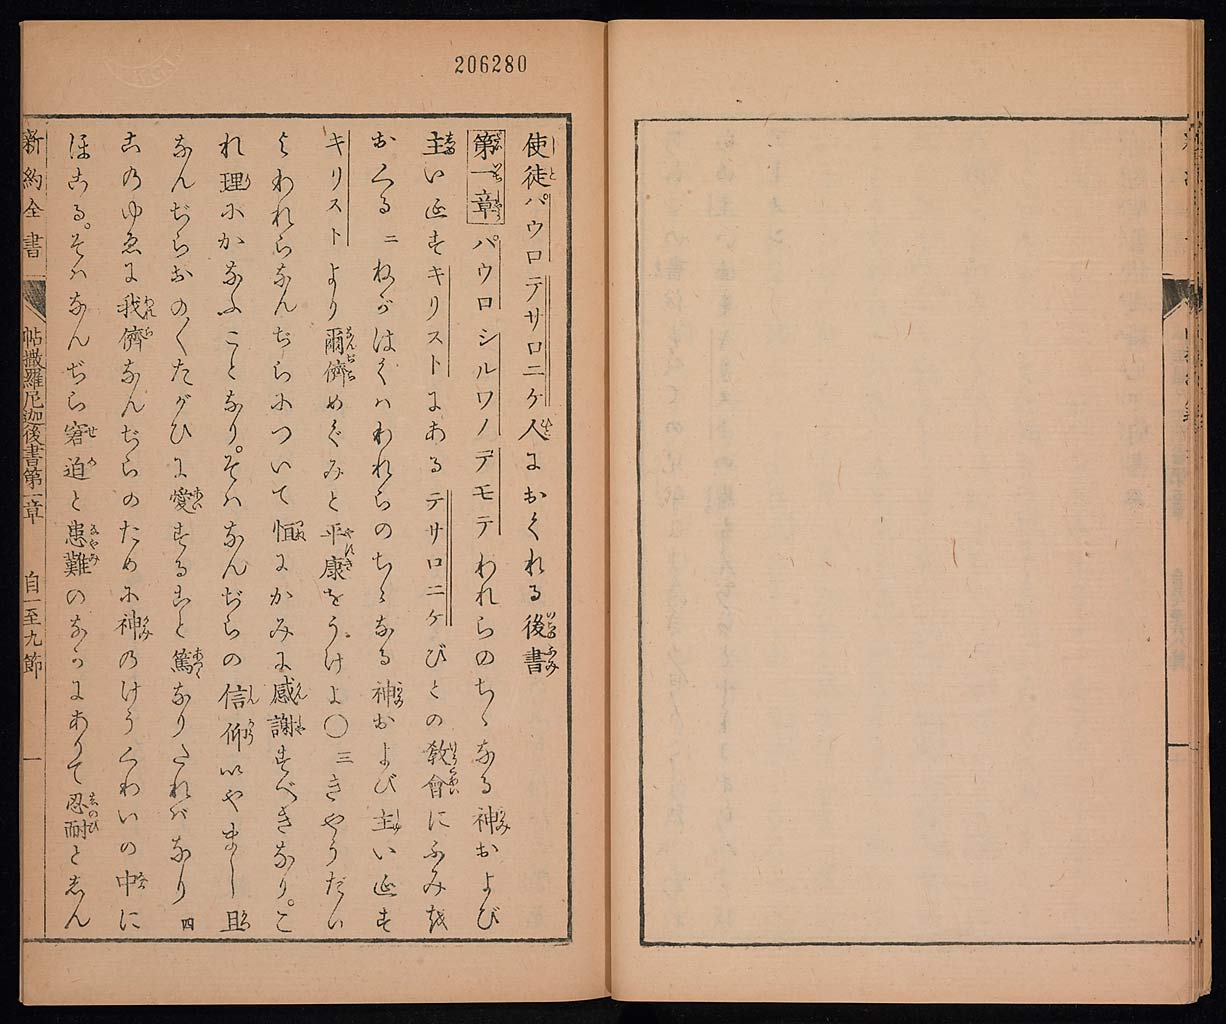 206280
使徒パウロテサロニケ人におくれる後書
第一章 パウロシルワノテモテわれらのちゝなる神および
主いゑすキリストにあるテサロニケびとの教會にふみを
おくる 二 ねがはくハわれらのちゝなる神および主いゑす
キリストより爾儕めぐみと平康をうけよ〇三きやうだい
よわれらなんぢらについて恒にかみに感謝すべきなり。こ
れ理にかなふことなり。そハなんぢらの信仰いやまし且
なんぢらおの〱たがひに愛すること篤なりたれバなり 四
このゆゑに我儕なんぢらのために神のけうくわいの中に
ほこる。そハなんぢら窘迫と患難のなかにありて忍耐としん
新約全書 帖撒羅尼迦後書第一章 自一至九節 一